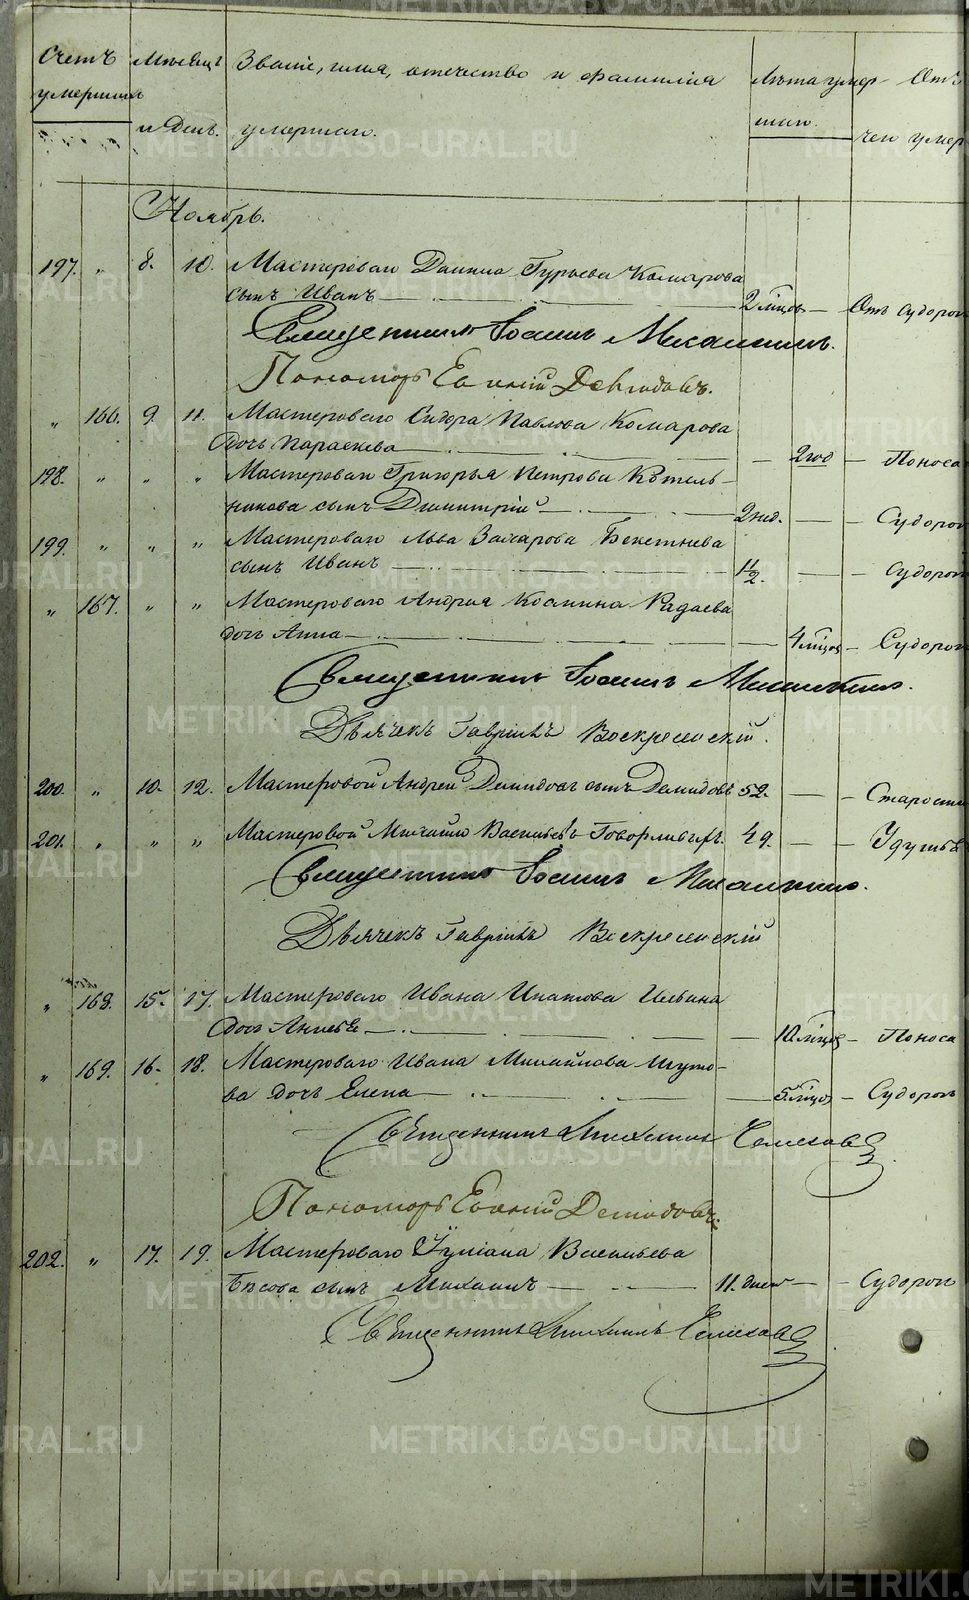 Счетъ умершихъ Мѣсяцъ и День. Званіе, имя, отчество и фамилія умершаго. Лѣта умершаго. Отъ чего умер
Ноябрь.
197. „ 8. 10. Мастероваго Данила Гурьева Комарова
сынъ Иванъ — 2 мѣсяц — Отъ судорог
Священникъ Іоаннъ
Пономарь Демидовъ.
„ 166. 9. 11. Мастероваго Сидора Павлова Комарова
дочь Параскева — 2 год — Поноса
198. „ „ „ Мастероваго Григорья Петрова Котель-
никова сынъ Димитрій — 2 нед. — Судорог
199. „ „ „ Мастероваго Льва Захарова
сынъ Иванъ — 1½. — Судорог
„ 167. „ „ Мастероваго Андрея Космина Радаева
дочь Анна — 4 мѣсяц — Судорог
Священникъ Іоаннъ
Дьячекъ Гавріилъ Воскресенскій.
200. „ 10. 12. Мастеровой Андрей Демидовъ сынъ Демидовъ 52. — Старости
201. „ „ „ Мастеровой Михайло Васильевъ 49. — Удушье
Священникъ Іоаннъ
Дьячекъ Гавріилъ Воскресенскій
„ 168. 15. 17. Мастероваго Ивана Ипатова Ильина
дочь — 10 мѣсяц — Поноса
„ 169. 16. 18. Мастероваго Ивана Михайлова Шуто-
ва дочь Елена — 5 мѣсяц — Судорог
Священникъ
Пономарь Демидовъ.
202. „ 17. 19. Мастероваго Іуліана Васильева
Бѣсова сынъ Михаилъ — 11. дней — Судорог
Священникъ
METRIKI.GASO-URAL.RU